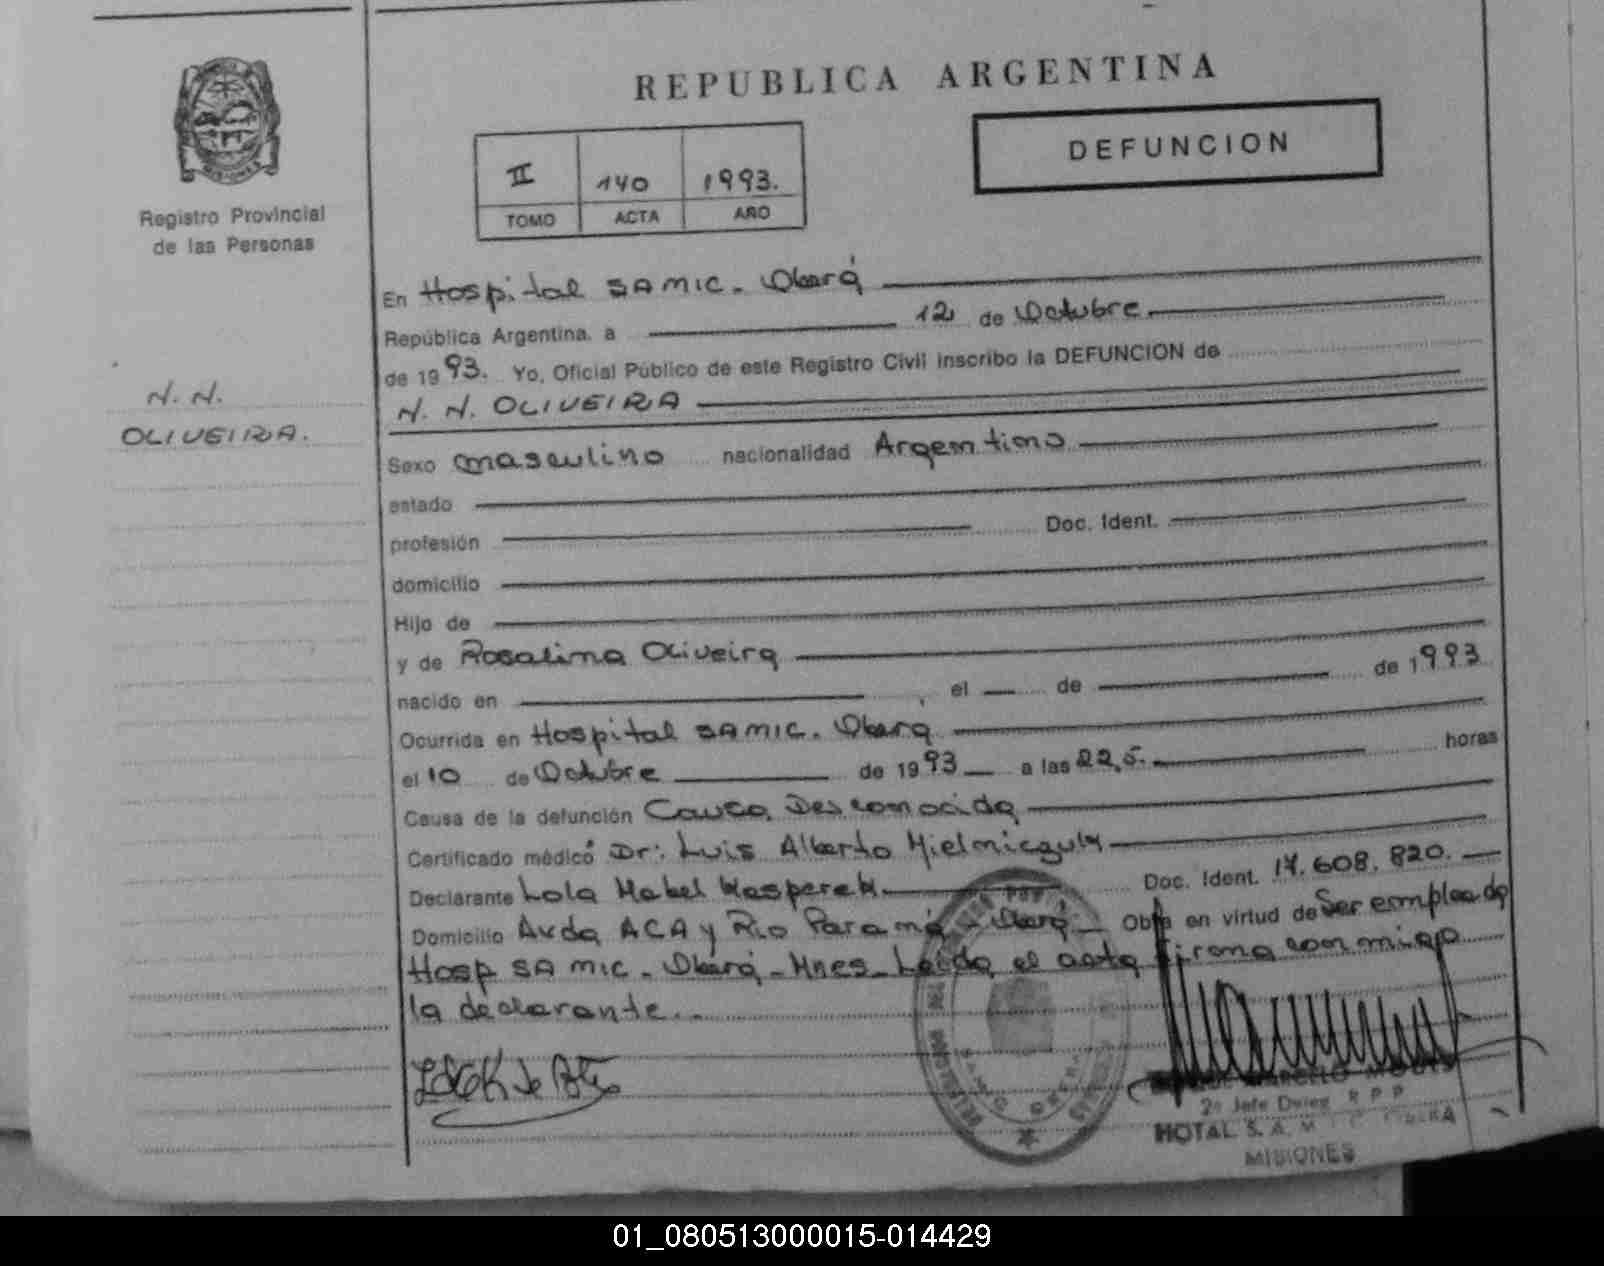 REPUBLICA ARGENTINA
DEFUNCION
II 140 1993.
TOMO ACTA AÑO
MISIONES
Registro Provincial
de las Personas
N. N.
OLIVEIRA.
En Hospital SAMIC. Oberá
República Argentina, a 12 de Octubre
de 1993. Yo, Oficial Público de este Registro Civil inscribo la DEFUNCION de
N. N. OLIVEIRA
Sexo masculino nacionalidad Argentino
estado
profesión Doc. Ident.
domicilio
Hijo de
y de Rosalina Oliveira
nacido en , el de de 1993
Ocurrida en Hospital SAMIC. Oberá
el 10 de Octubre de 1993 a las 22,5. horas
Causa de la defunción Causa Desconocida
Certificado médico Dr: Luis Alberto
Declarante Lola Mabel Kasperek Doc. Ident. 17.608.820.
Domicilio Avda ACA y Rio Paraná - Oberá Obra en virtud de Ser empleada
Hosp SAMIC. Oberá - Mnes - Leída el acta firma conmigo
la declarante..
MARCELO
2º Jefe Deleg. R P P
HOTAL S. A. M I C OBERA
MISIONES
01_080513000015-014429